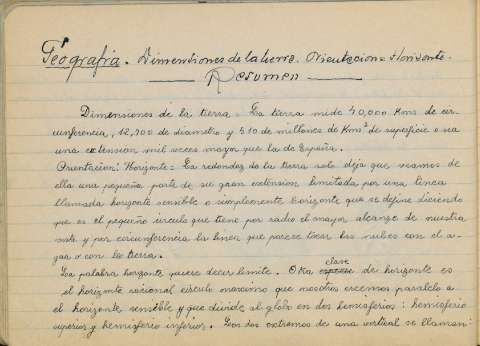 Geografia. Dimentsiones de la tierra. Orientacion = Horizonte.
Resumen
Dimensiones de la tierra = La tierra mide 40,000 Kms de cir-
cunferencia, 12,700 de diametro y 510 de millones de Kms² de superficie o sea
una extension mil veces mayor que la de España.
Orientacion: Horizonte = La redondez de la tierra solo deja que veamos de
ella una pequeña parte de su gran extension limitada por una linea
llamada horizonte sensible o simplemente horizonte que se define diciendo
que es el pequeño circulo que tiene por radio el mayor alcance de nuestra
vista y por circunferencia la linea que parece tocar las nubes con el a-
gua o con la tierra.
La palabra horizonte quiere decir limite. Otra clase de horizonte es
el horizonte racional circulo maximo que nosotros creemos paralelo a
el horizonte sensible y que divide al globo en dos hemisferios: hemisferio
superior y hemisferio inferior. Los dos extremos de una vertical se llaman: